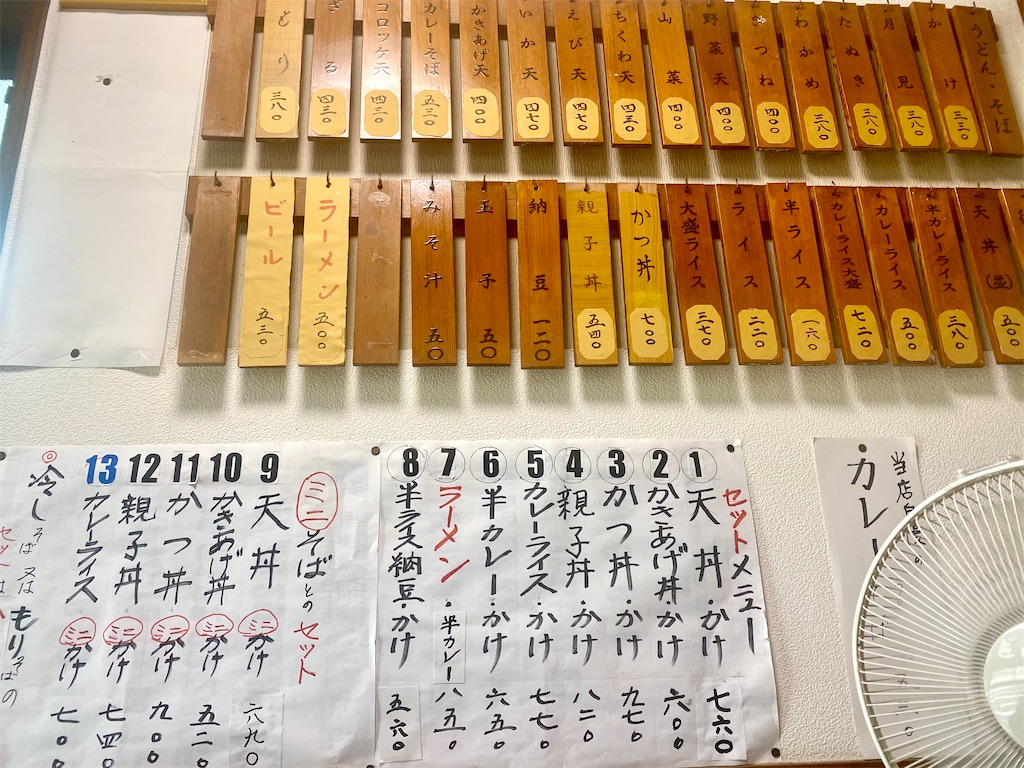 うどん・そば
かけ 三三〇
月見 三八〇
たぬき 三八〇
わかめ 三八〇
きつね 四〇〇
野菜天 四〇〇
山菜 四〇〇
ちくわ天 四三〇
えび天 四七〇
いか天 四七〇
かきあげ天 四〇〇
カレーそば 五三〇
コロッケ天 四三〇
ざる 四三〇
とり 三八〇
天丼(並) 五〇〇
半カレーライス 三八〇
カレーライス 五〇〇
カレーライス大盛 七二〇
半ライス 一六〇
ライス 二二〇
大盛ライス 三七〇
かつ丼 七〇〇
親子丼 五四〇
納豆 一二〇
玉子 五〇
みそ汁 五〇
ラーメン 五〇〇
ビール 五三〇
当店自慢の
カレー
セットメニュー
1 天丼・かけ 七六〇
2 かきあげ丼・かけ 六〇〇
3 かつ丼・かけ 九七〇
4 親子丼・かけ 八二〇
5 カレーライス・かけ 七七〇
6 半カレー・かけ 六五〇
7 ラーメン・半カレー 八五〇
8 半ライス納豆・かけ 五六〇
ミニそばとのセット
9 天丼 ミニかけ 六九〇
10 かきあげ丼 ミニかけ 五二〇
11 かつ丼 ミニかけ 九〇〇
12 親子丼 ミニかけ 七四〇
13 カレーライス ミニかけ 七〇〇
◎冷しそば又はもりそばの
セットは